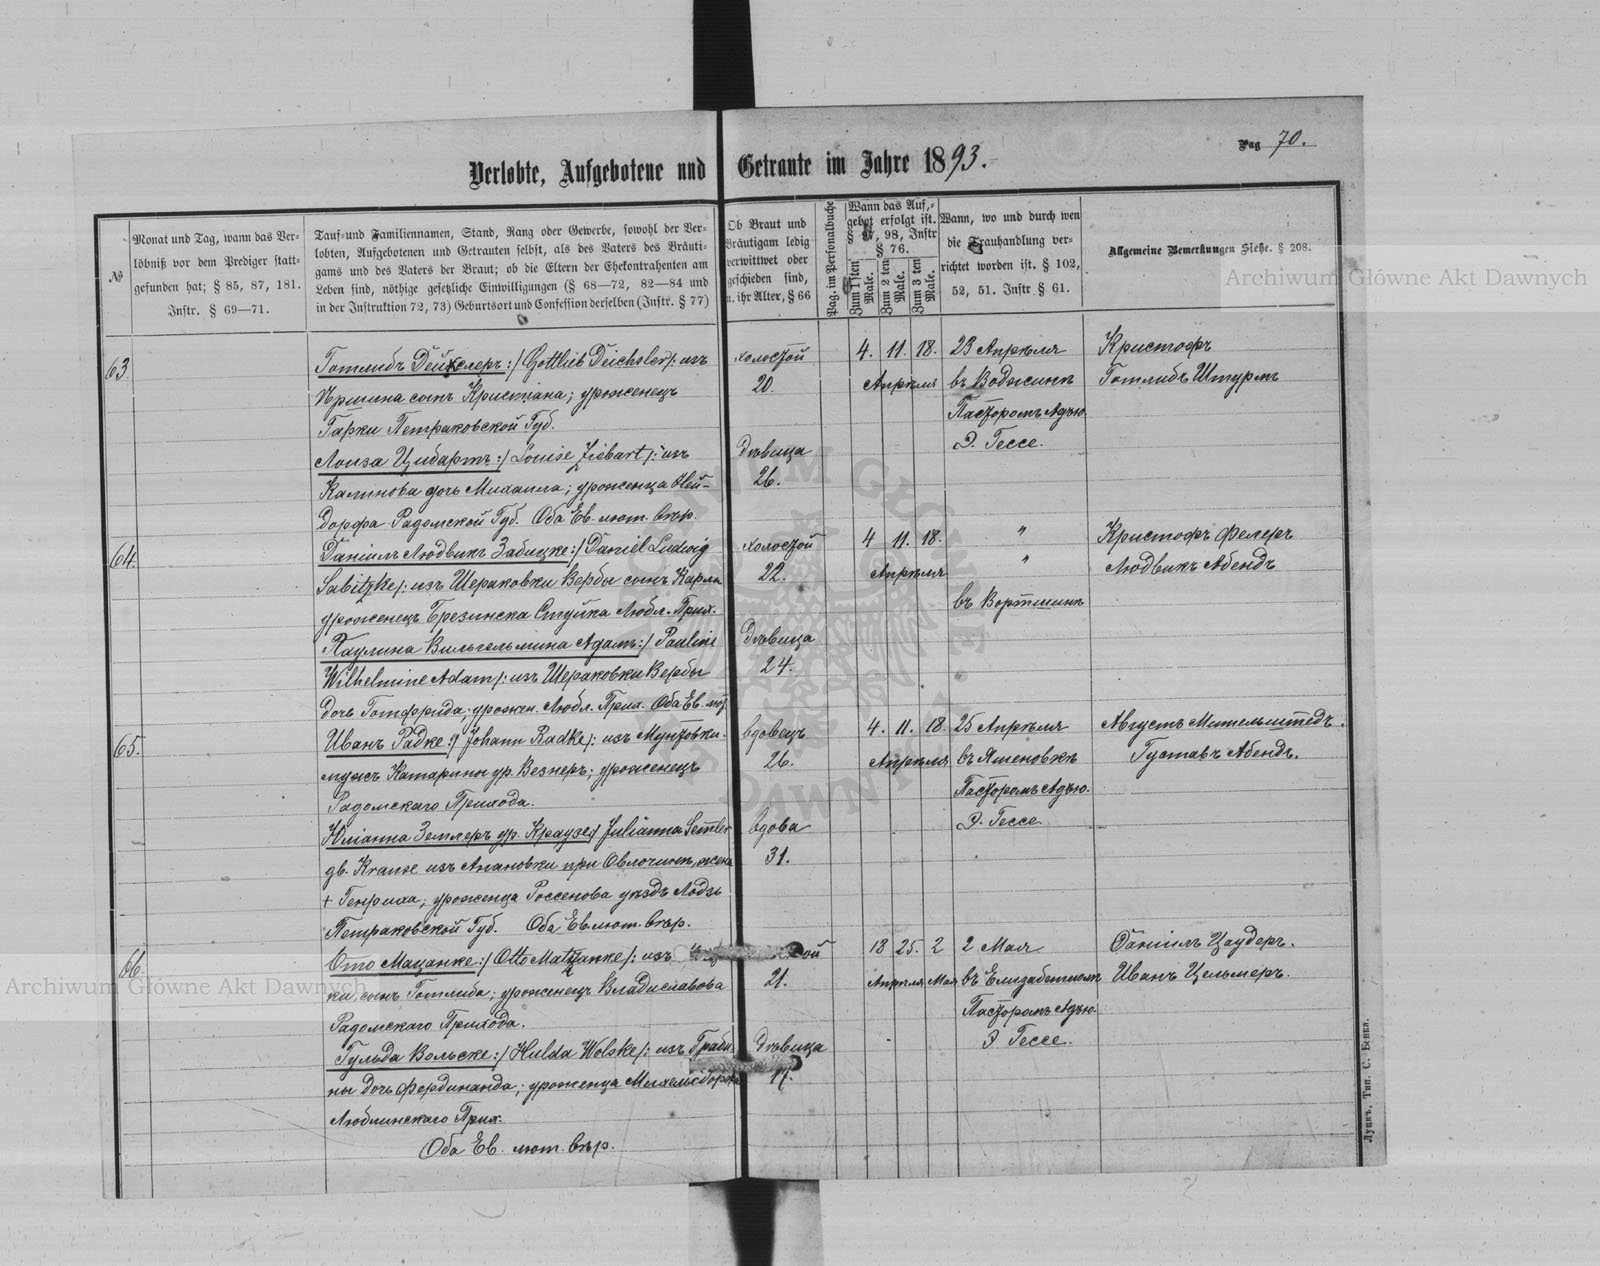 Pag 70.
Verlobte, Aufgebotene und Getraute im Jahre 1893.
№
Monat und Tag, wann das Ver-
löbniß vor dem Prediger statt-
gefunden hat; § 85, 87, 181.
Instr. § 69—71.
Tauf- und Familiennamen, Stand, Rang oder Gewerbe, sowohl der Ver-
lobten, Aufgebotenen und Getrauten selbst, als des Vaters des Bräuti-
gams und des Vaters der Braut; ob die Eltern der Ehekontrahenten am
Leben sind, nöthige gesetzliche Einwilligungen (§ 68—72, 82—84 und
in der Instruktion 72, 73) Geburtsort und Confession derselben (Instr. § 77)
Ob Braut und
Bräutigam ledig
verwittwet oder
geschieden sind,
u. ihr Alter, § 66
Pag. im Personalbuche
Wann das Auf-
gebot erfolgt ist.
§ 97, 98, Instr
§ 76.
Zum 1 sten Male.
Zum 2 ten Male.
Zum 3 ten Male.
Wann, wo und durch wen
die Trauhandlung ver-
richtet worden ist. § 102,
52, 51. Instr § 61.
Allgemeine Bemerkungen Siehe. § 208.
Archiwum Główne Akt Dawnych
63.
Готлибъ Дейкслеръ :/ Gottlieb Deichsler /: изъ
сынъ Кристіана; уроженецъ
Петраковской Губ.
Лоиза Цибартъ :/ Louise Ziebart /: изъ
Калинова дочь Михаила; уроженца Ней-
дорфа Радомской Губ. Оба Ев. лют. вѣр.
холостой
20.
Дѣвица
26.
4. 11. 18.
Апрѣля
23 Апрѣля
въ
Пасторомъ Адъю.
Э. Гессе.
Кристофъ
Готлибъ Штурмъ
64.
Даніилъ Людвикъ Забицке :/ Daniel Ludwig
Sabitzke /: изъ Шераковки Вербы сынъ Карла
уроженецъ Любл. Прих.
Паулина Вильгельмина Адамъ :/ Pauline
Wilhelmine Adam /: изъ Шераковки Вербы
дочь Готфрида; урожен. Любл. Прих. Оба Ев. лют.
холостой
22.
Дѣвица
24.
4 11. 18.
Апрѣля
"
"
въ
Кристофъ Фелеръ
Людвикъ Абендъ
65.
Иванъ Радке :/ Johann Radke /: изъ
мужъ Катарины ур. Везнеръ; уроженецъ
Радомскаго Прихода.
Юліанна Землеръ ур. Краузе :/ Julianna Semler
Krause изъ при жена
+ Генриха; уроженца уѣздъ Лодзь
Петраковской Губ. Оба Ев. лют. вѣр.
вдовецъ
26.
вдова
31.
4. 11. 18
Апрѣля
25 Апрѣля
въ Яменовкѣ
Пасторомъ Адъю.
Э. Гессе
Августъ Мительштедъ.
Густавъ Абендъ.
66.
Отто Мацанке :/ Otto Matzanke /: изъ
ки сынъ Готлиба; уроженецъ Владиславова
Радомскаго Прихода.
Гульда Вольске :/ Hulda Wolske /: изъ Граби-
ны дочь Фердинанда; уроженца
Люблинскаго Прих.
Оба Ев. лют. вѣр.
21.
Дѣвица
18 25. 2
Апрѣля Мая
2 Мая
въ
Пасторомъ Адъю.
Э Гессе.
Даніилъ Цаудеръ.
Иванъ Цельмеръ.
Archiwum Główne Akt Dawnych
Луцкъ, Тип. С. Бенка.